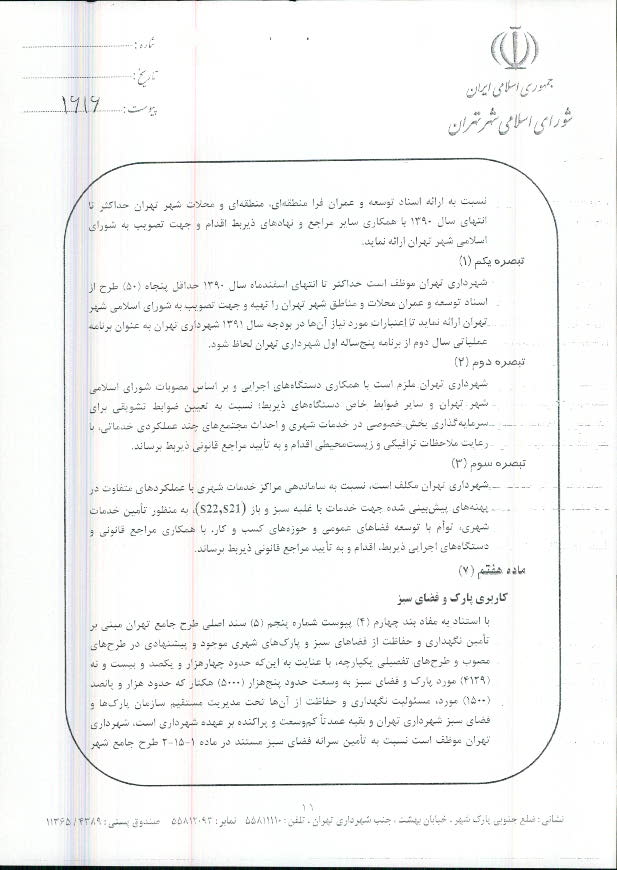 جمهوری اسلامی ایران
شورای اسلامی شهر تهران
شماره :
تاریخ :
پیوست :
نسبت به ارائه اسناد توسعه و عمران فرا منطقه‌ای، منطقه‌ای و محلات شهر تهران حداکثر تا
انتهای سال ۱۳۹۰ با همکاری سایر مراجع و نهادهای ذیربط اقدام و جهت تصویب به شورای
اسلامی شهر تهران ارائه نماید.
تبصره یکم (۱)
شهرداری تهران موظف است حداکثر تا انتهای اسفندماه سال ۱۳۹۰ حداقل پنجاه (۵۰) طرح از
اسناد توسعه و عمران محلات و مناطق شهر تهران را تهیه و جهت تصویب به شورای اسلامی شهر
تهران ارائه نماید تا اعتبارات مورد نیاز آن‌ها در بودجه سال ۱۳۹۱ شهرداری تهران به عنوان برنامه
عملیاتی سال دوم از برنامه پنج‌ساله اول شهرداری تهران لحاظ شود.
تبصره دوم (۲)
شهرداری تهران ملزم است با همکاری دستگاه‌های اجرایی و بر اساس مصوبات شورای اسلامی
شهر تهران و سایر ضوابط خاص دستگاه‌های ذیربط؛ نسبت به تعیین ضوابط تشویقی برای
سرمایه‌گذاری بخش خصوصی در خدمات شهری و احداث مجتمع‌های چند عملکردی خدماتی، با
رعایت ملاحظات ترافیکی و زیست‌محیطی اقدام و به تأیید مراجع قانونی ذیربط برساند.
تبصره سوم (۳)
شهرداری تهران مکلف است، نسبت به ساماندهی مراکز خدمات شهری با عملکردهای متفاوت در
پهنه‌های پیش‌بینی شده جهت خدمات با غلبه سبز و باز (S22,S21)، به منظور تأمین خدمات
شهری، توأم با توسعه فضاهای عمومی و حوزه‌های کسب و کار، با همکاری مراجع قانونی و
دستگاه‌های اجرایی ذیربط، اقدام و به تأیید مراجع قانونی ذیربط برساند.
ماده هفتم (۷)
کاربری پارک و فضای سبز
با استناد به مفاد بند چهارم (۴) پیوست شماره پنجم (۵) سند اصلی طرح جامع تهران مبنی بر
تأمین نگهداری و حفاظت از فضاهای سبز و پارک‌های شهری موجود و پیشنهادی در طرح‌های
مصوب و طرح‌های تفصیلی یکپارچه، با عنایت به این‌که حدود چهارهزار و یکصد و بیست و نه
(۴۱۲۹) مورد پارک و فضای سبز به وسعت حدود پنج‌هزار (۵۰۰۰) هکتار که حدود هزار و پانصد
(۱۵۰۰) مورد، مسئولیت نگهداری و حفاظت از آن‌ها تحت مدیریت مستقیم سازمان پارک‌ها و
فضای سبز شهرداری تهران و بقیه عمدتاً کم‌وسعت و پراکنده بر عهده شهرداری است، شهرداری
تهران موظف است نسبت به تأمین سرانه فضای سبز مستند در ماده ۱-۱۵-۲ طرح جامع شهر
۱۶
نشانی: ضلع جنوبی پارک شهر، خیابان بهشت، جنب شهرداری تهران، تلفن: ۵۵۸۱۱۱۱۰ نمابر: ۵۵۸۱۲۰۹۲ صندوق پستی: ۴۳۸۹ / ۱۱۳۶۵